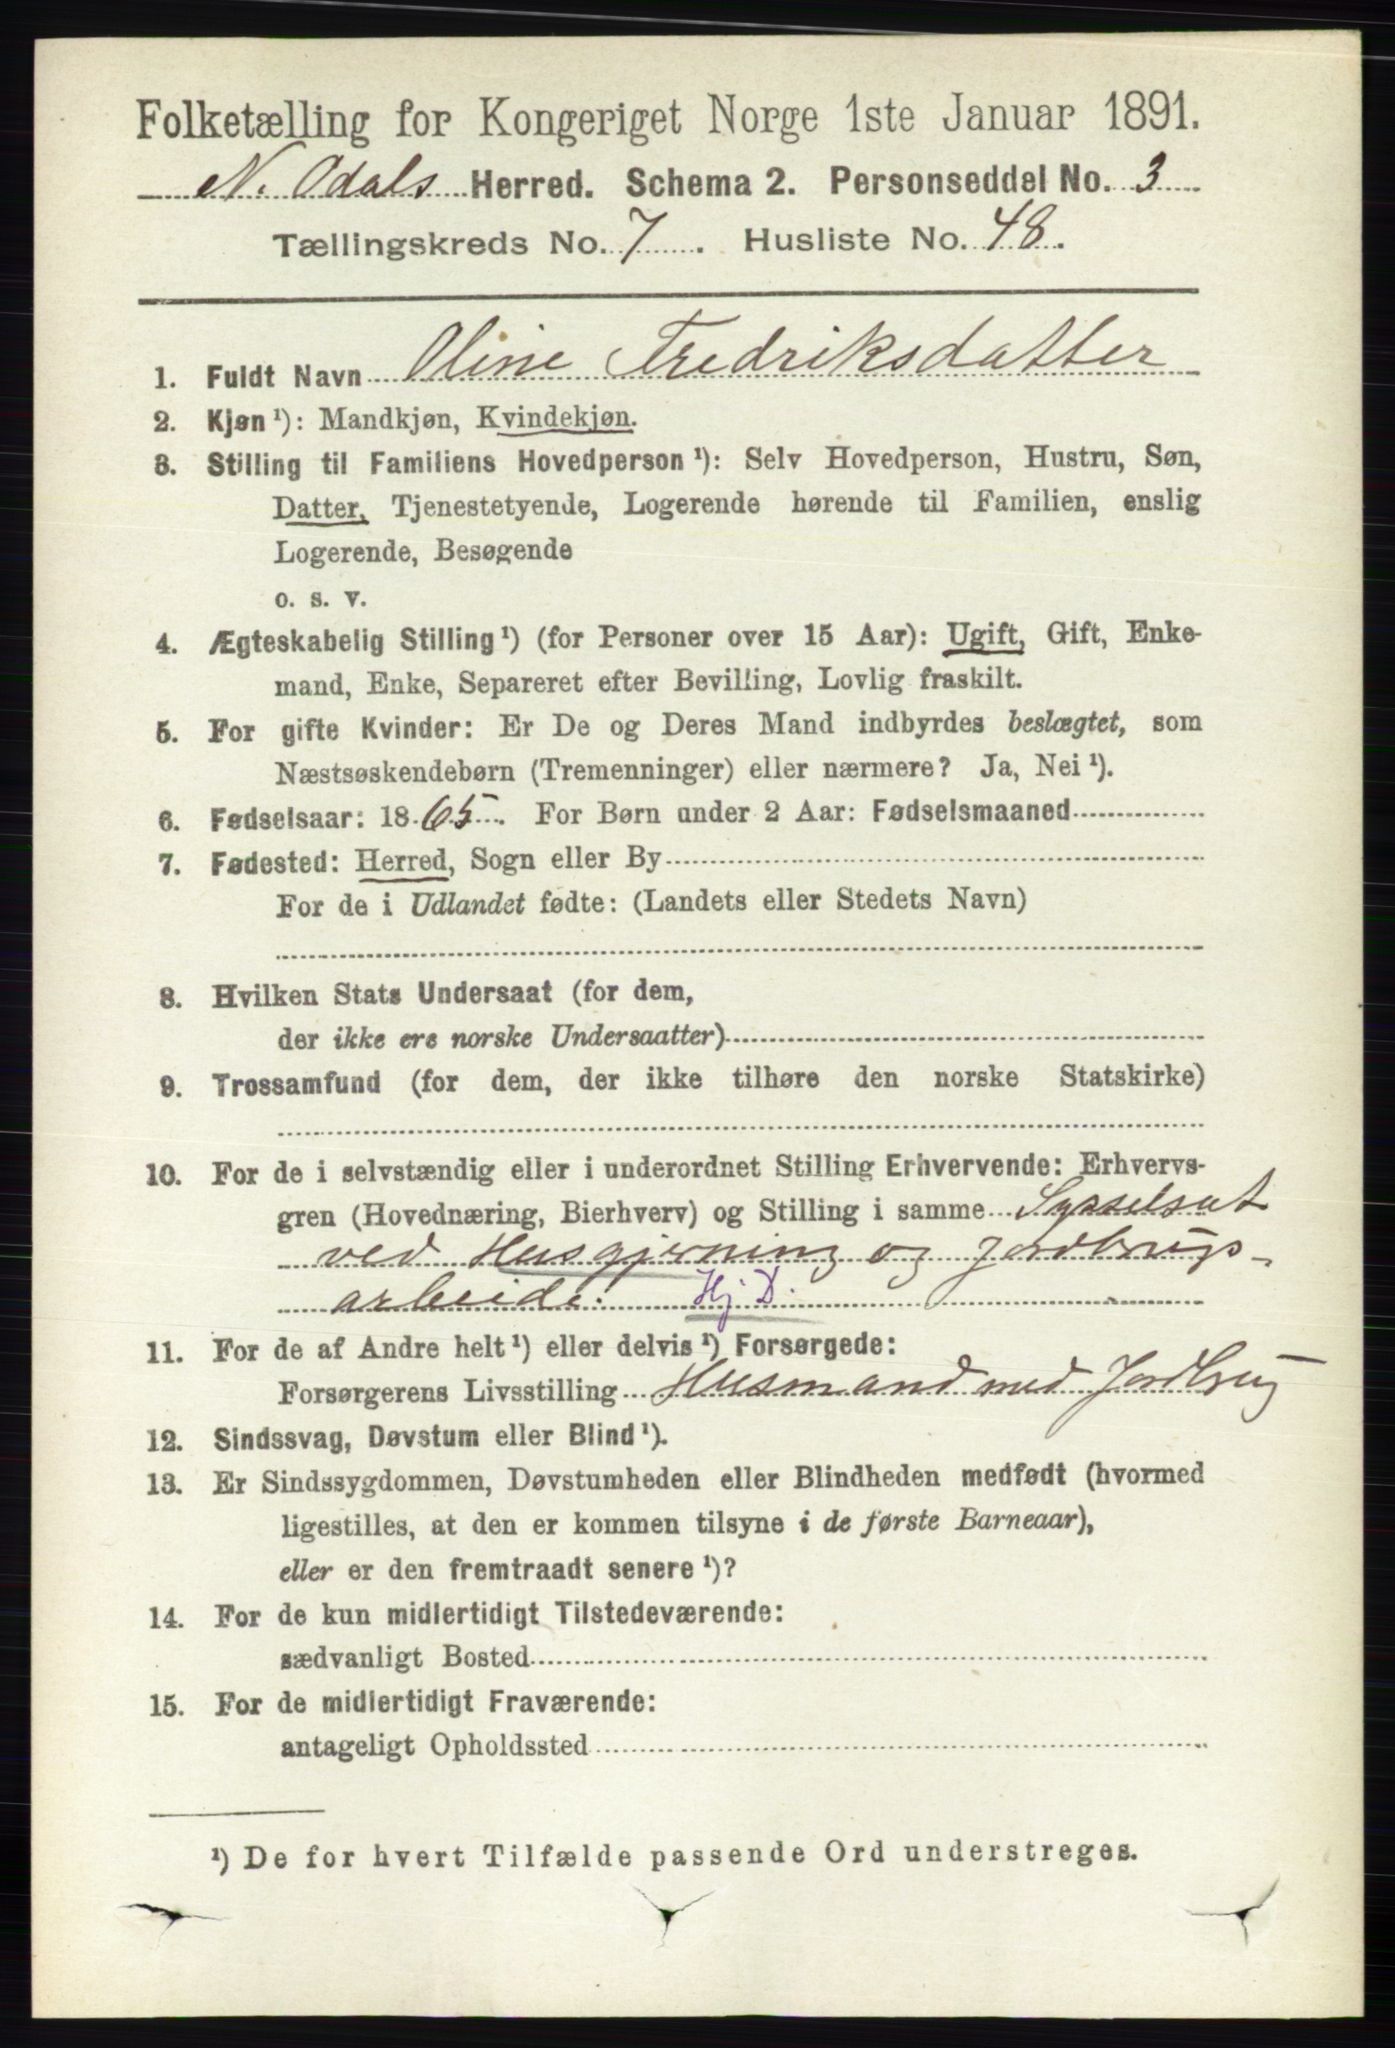 Folketælling for Kongeriget Norge 1ste Januar 1891.
N. Odals Herred. Schema 2. Personseddel No. 3
Tællingskreds No. 7. Husliste No. 48.
1. Fuldt Navn Oline Fredriksdatter
2. Kjøn ¹): Mandkjøn, Kvindekjøn.
3. Stilling til Familiens Hovedperson ¹): Selv Hovedperson, Hustru, Søn,
Datter, Tjenestetyende, Logerende hørende til Familien, enslig
Logerende, Besøgende
o. s. v.
4. Ægteskabelig Stilling ¹) (for Personer over 15 Aar): Ugift, Gift, Enke-
mand, Enke, Separeret efter Bevilling, Lovlig fraskilt.
5. For gifte Kvinder: Er De og Deres Mand indbyrdes beslægtet, som
Næstsøskendebørn (Tremenninger) eller nærmere? Ja, Nei ¹).
6. Fødselsaar: 1865. For Børn under 2 Aar: Fødselsmaaned
7. Fødested: Herred, Sogn eller By
For de i Udlandet fødte: (Landets eller Stedets Navn)
8. Hvilken Stats Undersaat (for dem,
der ikke ere norske Undersaatter)
9. Trossamfund (for dem, der ikke tilhøre den norske Statskirke)
10. For de i selvstændig eller i underordnet Stilling Erhvervende: Erhvervs-
gren (Hovednæring, Bierhverv) og Stilling i samme Sysselsat
ved Husgjerning og Jordbrugs-
arbeide. Hj D.
11. For de af Andre helt ¹) eller delvis ¹) Forsørgede:
Forsørgerens Livsstilling Husmand med Jordbrug
12. Sindssvag, Døvstum eller Blind ¹).
13. Er Sindssygdommen, Døvstumheden eller Blindheden medfødt (hvormed
ligestilles, at den er kommen tilsyne i de første Barneaar),
eller er den fremtraadt senere ¹)?
14. For de kun midlertidigt Tilstedeværende:
sædvanligt Bosted
15. For de midlertidigt Fraværende:
antageligt Opholdssted
¹) De for hvert Tilfælde passende Ord understreges.